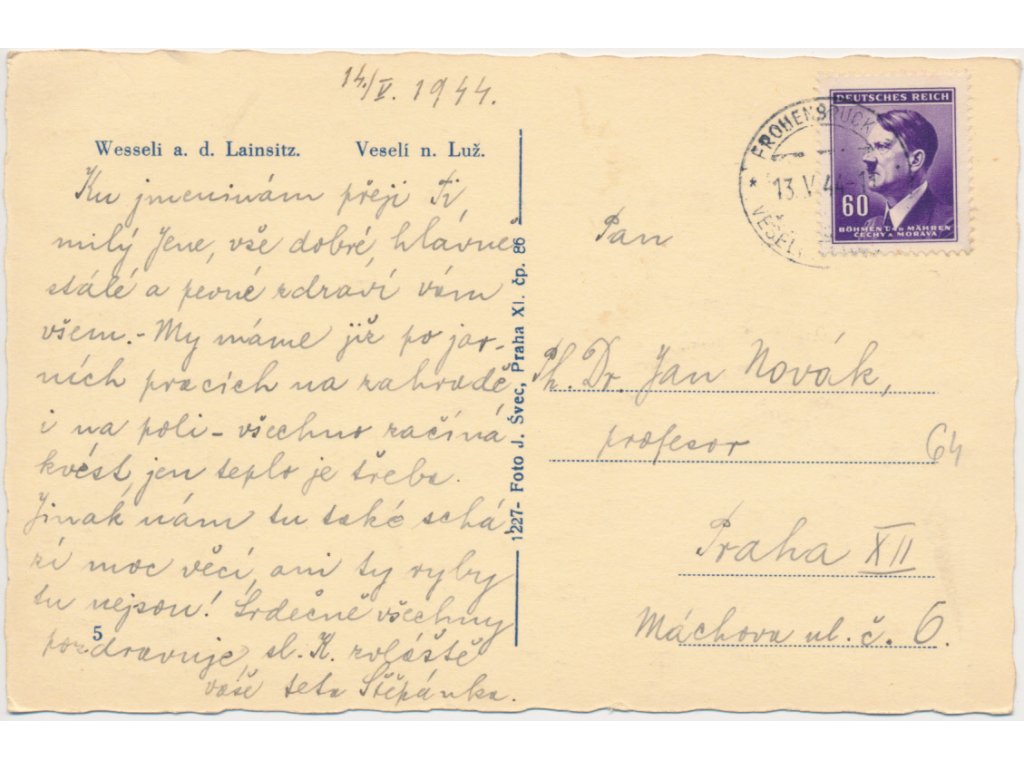 14./V. 1944.
Wesseli a. d. Lainsitz. Veselí n. Luž.
Ku jmeninám přeji Ti
milý Jene, vše dobré, hlavně
stálé a pevné zdraví vám
všem. - My máme již po jar-
ních pracích na zahradě
i na poli - všechno začíná
kvést, jen teplo je třeba.
Jinak nám tu také schá-
zí moc věcí, ani ty ryby
tu nejsou! Srdečně všechny
pozdravuje, sl. K. zvláště
vaše teta Štěpánka.
5
1227- Foto J. Švec, Praha XI. čp. 86
FROHENBRUCK
* 13. V. 44
VESELÍ
DEUTSCHES REICH
60
BÖHMEN UND MÄHREN
ČECHY A MORAVA
Pan
Ph. Dr. Jan Novák,
profesor
64
Praha XII
Máchova ul. č. 6.